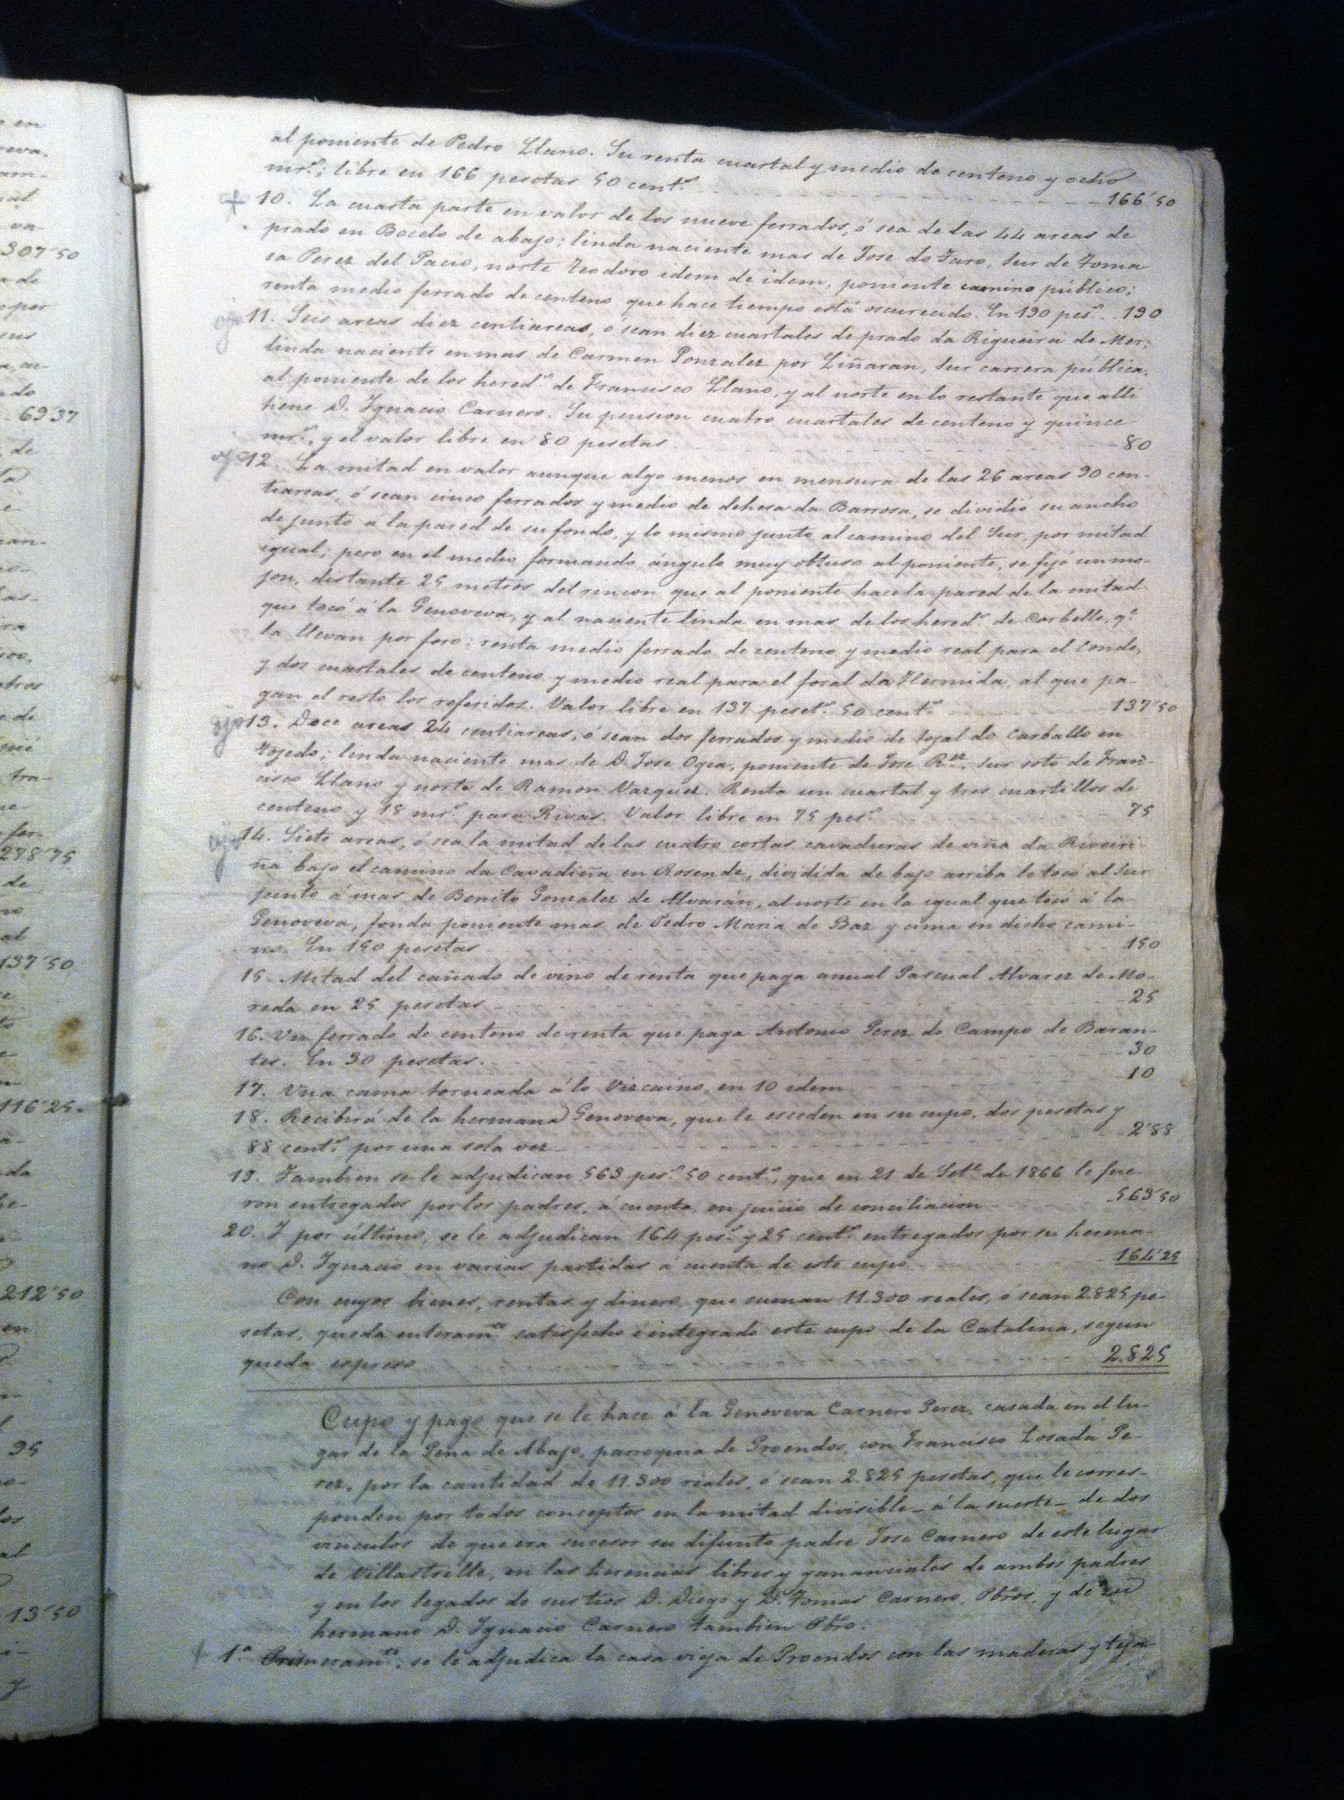 al poniente de Pedro Llano. Su renta cuartal y medio de centeno y ocho
mrs; libre en 166 pesetas 50 cents 166'50
10. La cuarta parte en valor de los nueve ferrados, ó sea de las 44 areas de
prado en Bocelo de abajo; linda naciente mas de Jose do Faro, Sur de Toma-
sa Perez del Pacio, norte Teodoro idem de idem, poniente camino público;
renta medio ferrado de centeno que hace tiempo está oscurecido. En 190 pes. 190
ojo 11. Seis areas diez centiareas, ó sean diez cuartales de prado da Rigueira de Mer;
linda naciente en mas de Carmen Gonzalez por Liñaran, Sur carrera pública,
al poniente de los hereds de Francisco Llano, y al norte en lo restante que alli
tiene D. Ignacio Carnero. Su pension cuatro cuartales de centeno y quince
mrs, y el valor libre en 80 pesetas 80
ojo 12. La mitad en valor aunque algo menos en mensura de las 26 areas 90 cen-
tiareas, ó sean cinco ferrados y medio de dehesa da Barrosa, se dividió su ancho
de junto a la pared de su fondo, y lo mismo junto al camino del Sur, por mitad
igual; pero en el medio formando ángulo muy obtuso al poniente, se fijó un mo-
jon, distante 25 metros del rincon que al poniente hace la pared de la mitad
que tocó á la Genoveva, y al naciente linda en mas de los hereds de Carballo, qe
la llevan por foro: renta medio ferrado de centeno y medio real para el Conde,
y dos cuartales de centeno y medio real para el foral da Hermida, al que pa-
gan el resto los referidos. Valor libre en 137 pesets 50 cents 137'50
ojo 13. Doce areas 24 centiareas, ó sean dos ferrados y medio de tojal do Carballo en
Tojedo; linda naciente mas de D. Jose Ogea, poniente de Jose Rz, Sur soto de Fran-
cisco Llano y norte de Ramon Vazquez. Renta un cuartal y tres cuartillos de
centeno y 18 mrs para Rivas. Valor libre en 75 pes 75
ojo 14. Siete areas, ó sea la mitad de las cuatro cortas cavaduras de viña da Riveiri-
ña bajo el camino da Cavadiña en Rosende, dividida de bajo arriba le tocó al Sur
junto á mas de Benito Gonzalez de Alvarán, al norte en la igual que tocó á la
Genoveva, fondo poniente mas de Pedro Maria de Baz y cima en dicho cami-
no. En 150 pesetas 150
15. Mitad del cañado de vino de renta que paga anual Pascual Alvarez de Mo-
reda en 25 pesetas 25
16. Un ferrado de centeno de renta que paga Antonio Perez do Campo de Baran-
tes. En 30 pesetas. 30
17. Una cama torneada á lo Vizcaino, en 10 idem 10
18. Recibirá de la hermana Genoveva, que le esceden en su cupo, dos pesetas y
88 cents por una sola vez 2'88
19. Tambien se le adjudican 563 pes. 50 cents, que en 21 de Sete de 1866 le fue-
ron entregados por los padres, á cuenta, en juicio de conciliacion 563'50
20. Y por último, se le adjudican 164 pes. y 25 cents entregados por su herma-
no D. Ignacio en varias partidas á cuenta de este cupo 164'25
Con cuyos bienes, rentas y dinero, que suman 11.300 reales, ó sean 2.825 pe-
setas, queda enteramte satisfecho é integrado este cupo de la Catalina, segun
queda espreso 2.825
Cupo y pago que se le hace á la Genoveva Carnero Perez, casada en el lu-
gar de la Pena de Abajo, parroquia de Proendos, con Francisco Losada Pe-
rez, por la cantidad de 11.300 reales, ó sean 2.825 pesetas, que le corres-
ponden por todos conceptos en la mitad divisible - á la suerte - de dos
vinculos de que era sucesor su difunto padre Jose Carnero de este lugar
de Villastrille, en las herencias libres y gananciales de ambos padres
y en los legados de sus tios D. Diego y D. Tomas Carnero, Pbros, y de su
hermano D. Ignacio Carnero tambien Pbro.
1.a Primeramte, se le adjudica la casa vieja de Proendos con las maderas y teja